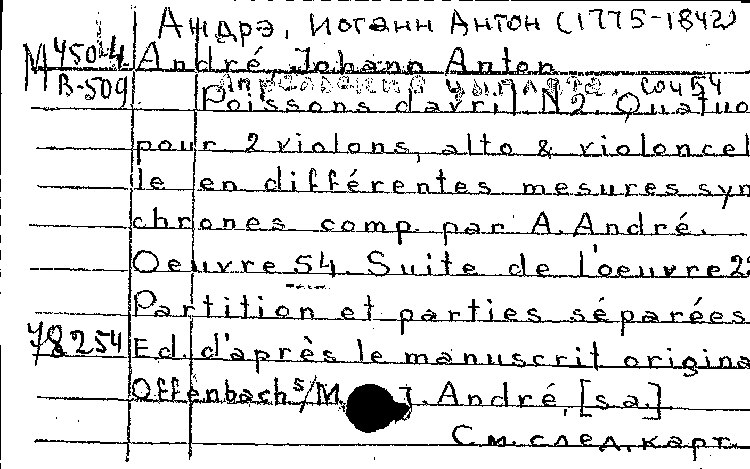 Андрэ, Иоганн Антон (1775-1842)
М 4504 André Johann Anton
В-509 соч 54
Poissons d'avril N2. Quatuo
pour 2 violons, alto & violoncel
le en différentes mesures syn
chrones comp. par A. André.
Oeuvre 54. Suite de l'oeuvre 2
Partition et parties séparées
78254 Ed. d'après le manuscrit origina
Offenbach s/M J. André, [s.a.]
См. след. карт.